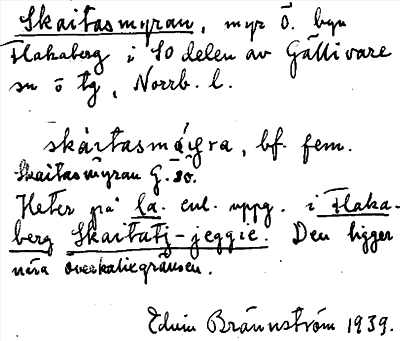 Skaitasmyran, myr ö. byn
Flakaberg i SO delen av Gällivare
sn o tg, Norrb. l.
skáitasmýra, bf. fem.
Skaitasmyran G. sö.
Heter på la. enl. uppg. i Flaka-
berg Skaitatj-jeggie. Den ligger
nära överkalixgränsen.
Edvin Brännström 1939.